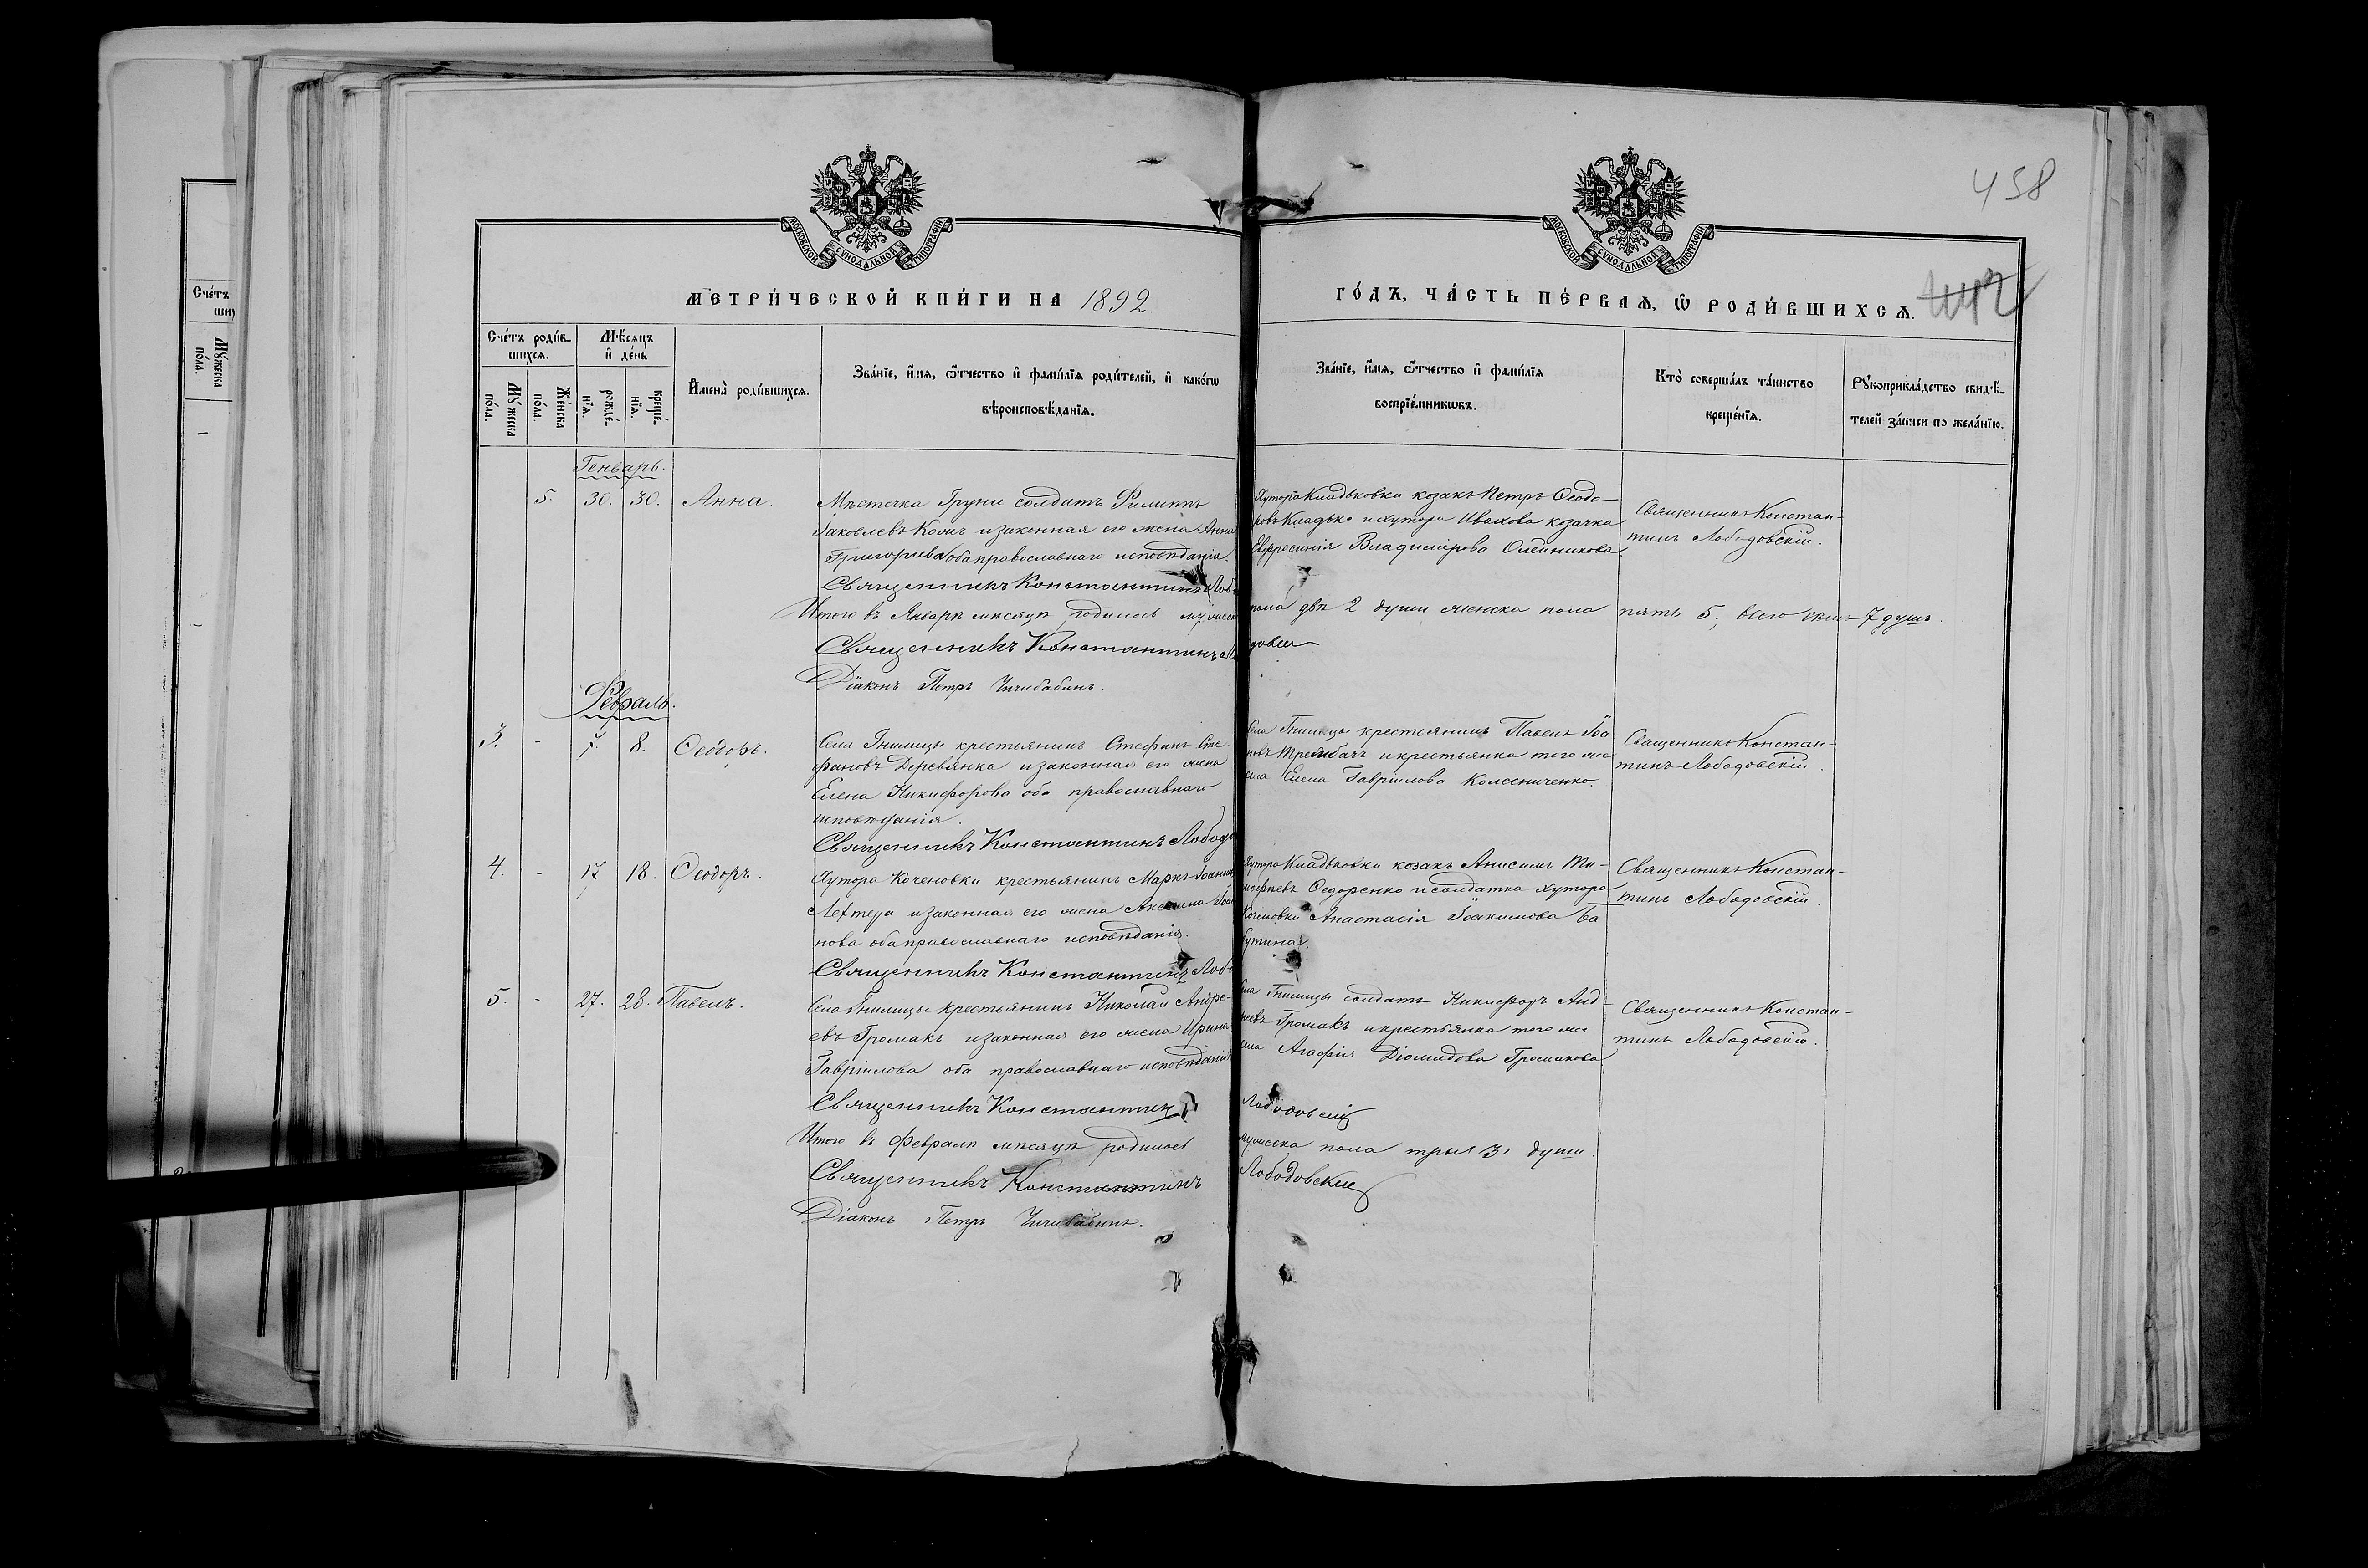 458
МЕТРИЧЕСКОЙ КНИГИ НА 1892
ГОДЪ, ЧАСТЬ ПЕРВАЯ, Ѿ РОДИВШИХСЯ.
Счетъ родив-
шихся.
Мѣсяцъ
и день
Мужеска
пола.
Женска
пола.
рожде-
нія.
креще-
нія.
Имена родившихся.
Званіе, имя, ѿтчество и фамилія родителей, и какогѡ
вѣроисповѣданія.
Званіе, имя, ѿтчество и фамилія
воспріемникѡвъ.
Кто совершалъ таинство
крещенія.
Рукоприкладство свидѣ-
телей записи по желанію.
Генварь.
5. 30. 30. Анна.
Мѣстечка Груни солдатъ Филиппъ
Іаковлевъ и законная его жена Анна
Григорьева оба православнаго исповѣданія.
Священникъ Константинъ
Хутора Кладьковки козакъ Петръ Ѳеодо-
ровъ Кладько и хутора Ивахова козачка
Евфросинія Владимірова Олейникова
Священникъ Констан-
тинъ Лободовскій.
Итого въ Январѣ мѣсяцѣ родилось мужеска пола двѣ 2 души женска пола пять 5, всего 7 душъ.
Священникъ Константинъ
Діаконъ Петръ Чичибабинъ.
Февраль.
3. - 7. 8. Ѳеодоръ.
Села Гнилицы крестьянинъ Стефанъ Сте-
фановъ Деревянка и законная его жена
Елена Никифорова оба православнаго
исповѣданія.
Священникъ Константинъ Лободо
Села Гнилицы крестьянинъ Павелъ Іоа-
новъ Трембачъ и крестьянка того же
села Елена Гавріилова Колесниченко.
Священникъ Констан-
тинъ Лободовскій.
4. - 17 18. Ѳеодоръ.
Хутора Коченовки крестьянинъ Маркъ Іоанновъ
Лехтера и законная его жена Аксинія Іоан
нова оба православнаго исповѣданія.
Священникъ Константинъ Лобо
Хутора Кладьковки козакъ Анисимъ Ти-
моѳеевъ Ѳедоренко и солдатка хутора
Коченовки Анастасія Іоакимова Ба
бутина.
Священникъ Констан-
тинъ Лободовскій.
5. - 27. 28. Павелъ.
Села Гнилицы крестьянинъ Николай Андре-
евъ Громакъ и законная его жена Ирина
Гавріилова оба православнаго исповѣданія
Священникъ Константинъ Лободовскій
Села Гнилицы солдатъ Никифоръ Анд-
реевъ Громакъ и крестьянка того же
села Агафія Діомидова Громакова.
Священникъ Констан-
тинъ Лободовскій.
Итого въ Февралѣ мѣсяцѣ родилось мужеска пола три 3, души.
Священникъ Константинъ Лободовскій
Діаконъ Петръ Чичибабинъ.